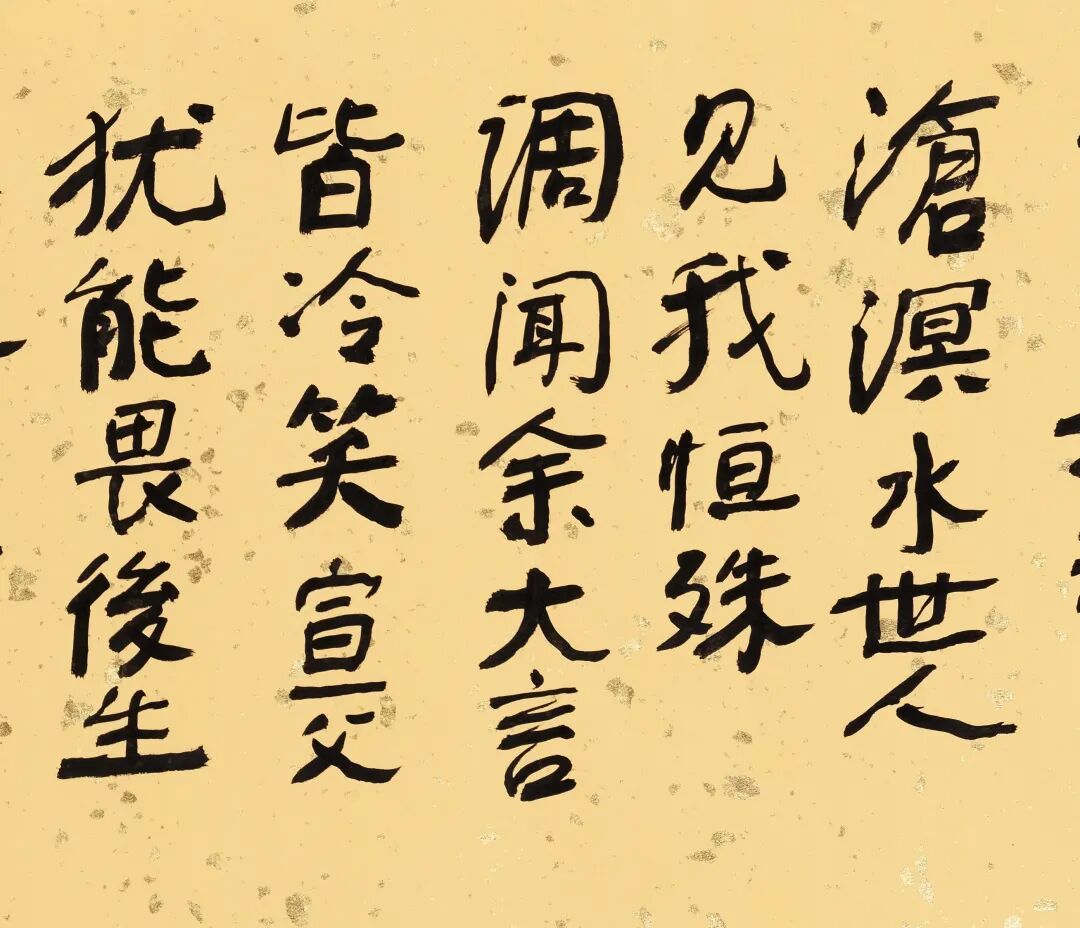 滄溟水世人
见我恒殊
调闻余大言
皆冷笑宣父
犹能畏後生